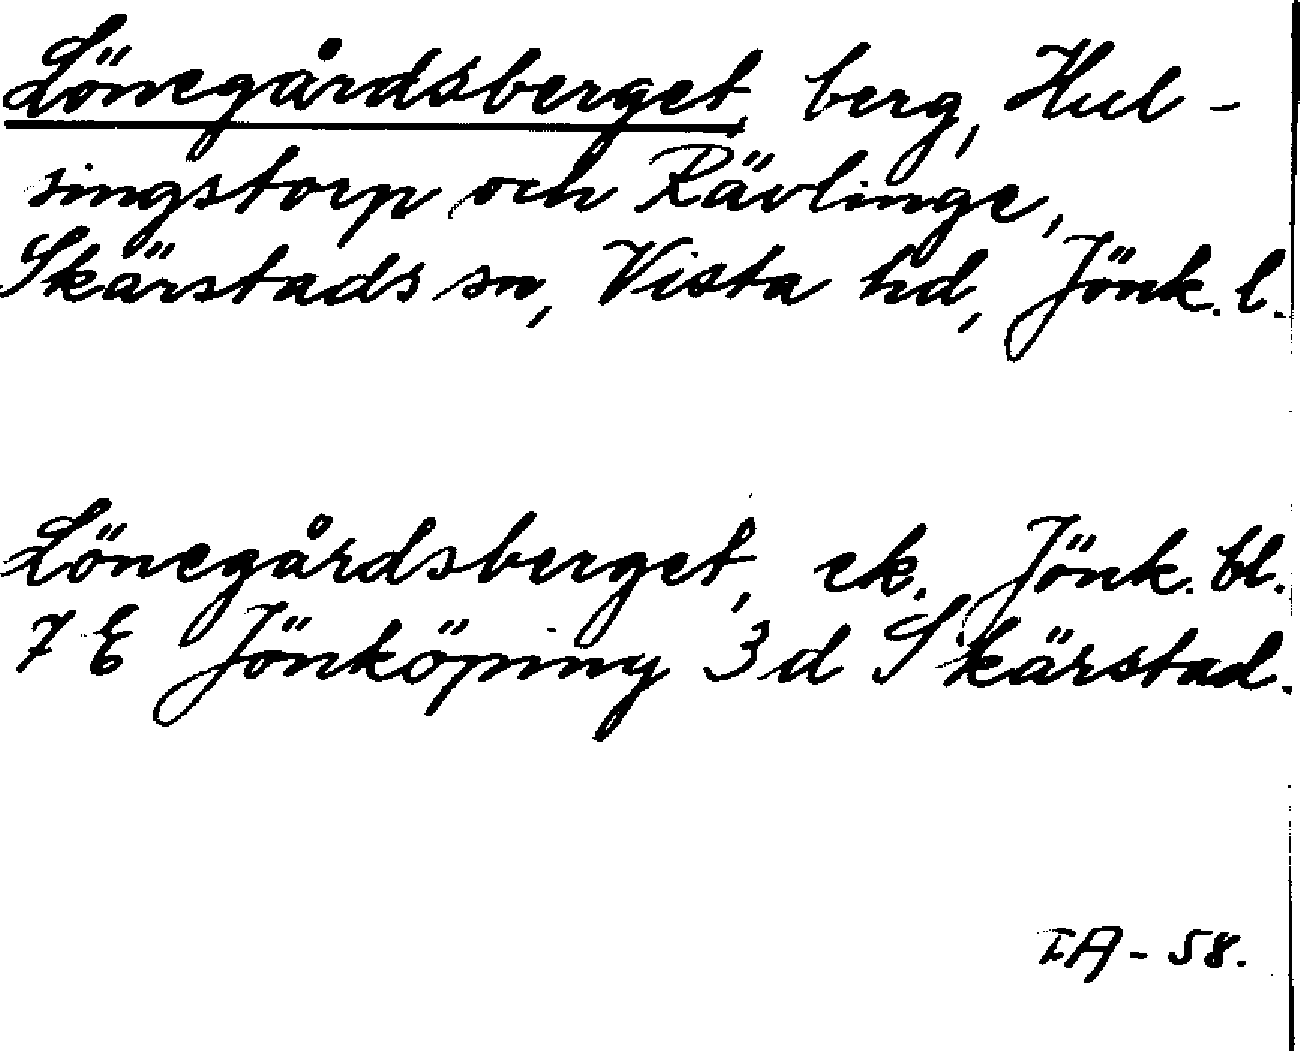 Lönegårdsberget, berg, Hul-
singstorp och Rävlinge,
Skärstads sn, Vista hd, Jönk. l.
Lönegårdsberget, ek. Jönk. bl.
7 E Jönköping 3d Skärstad.
EA - 58.